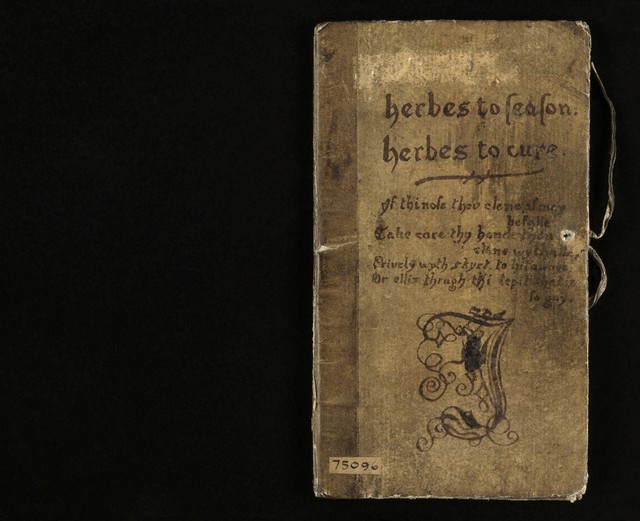 herbes to ſeaſon.
herbes to cure.
yf thi noſe thou clene
befalle
Take care thy honde thou
clene
Prively wyth ſkyrt
Or ellis thrugh thi tepit
ſo gay.
J
75096